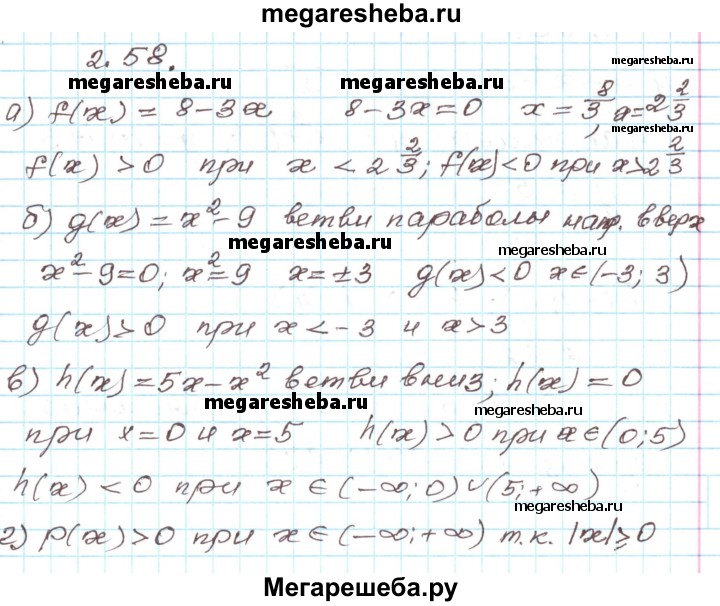 megaresheba.ru
2.58.
megaresheba.ru
megaresheba.ru
megaresheba.ru
а) f(x) = 8-3x 8-3x=0 x = 8/3, x=2 2/3
f(x) >0 при x < 2 2/3; f(x)<0 при x>2 2/3
б) g(x) = x²-9 ветви параболы нап. вверх
megaresheba.ru
megaresheba.ru
x²-9=0; x²=9 x=±3 g(x)<0 x∈(-3; 3)
g(x)>0 при x<-3 и x>3
в) h(x)=5x-x² ветви вниз; h(x)=0
megaresheba.ru
megaresheba.ru
при x=0 и x=5 h(x)>0 при x∈(0;5)
h(x)<0 при x∈(-∞;0)∪(5;+∞)
megaresheba.ru
г) p(x)>0 при x∈(-∞;+∞) т.к. |x|≥0
Мегарешеба.ру